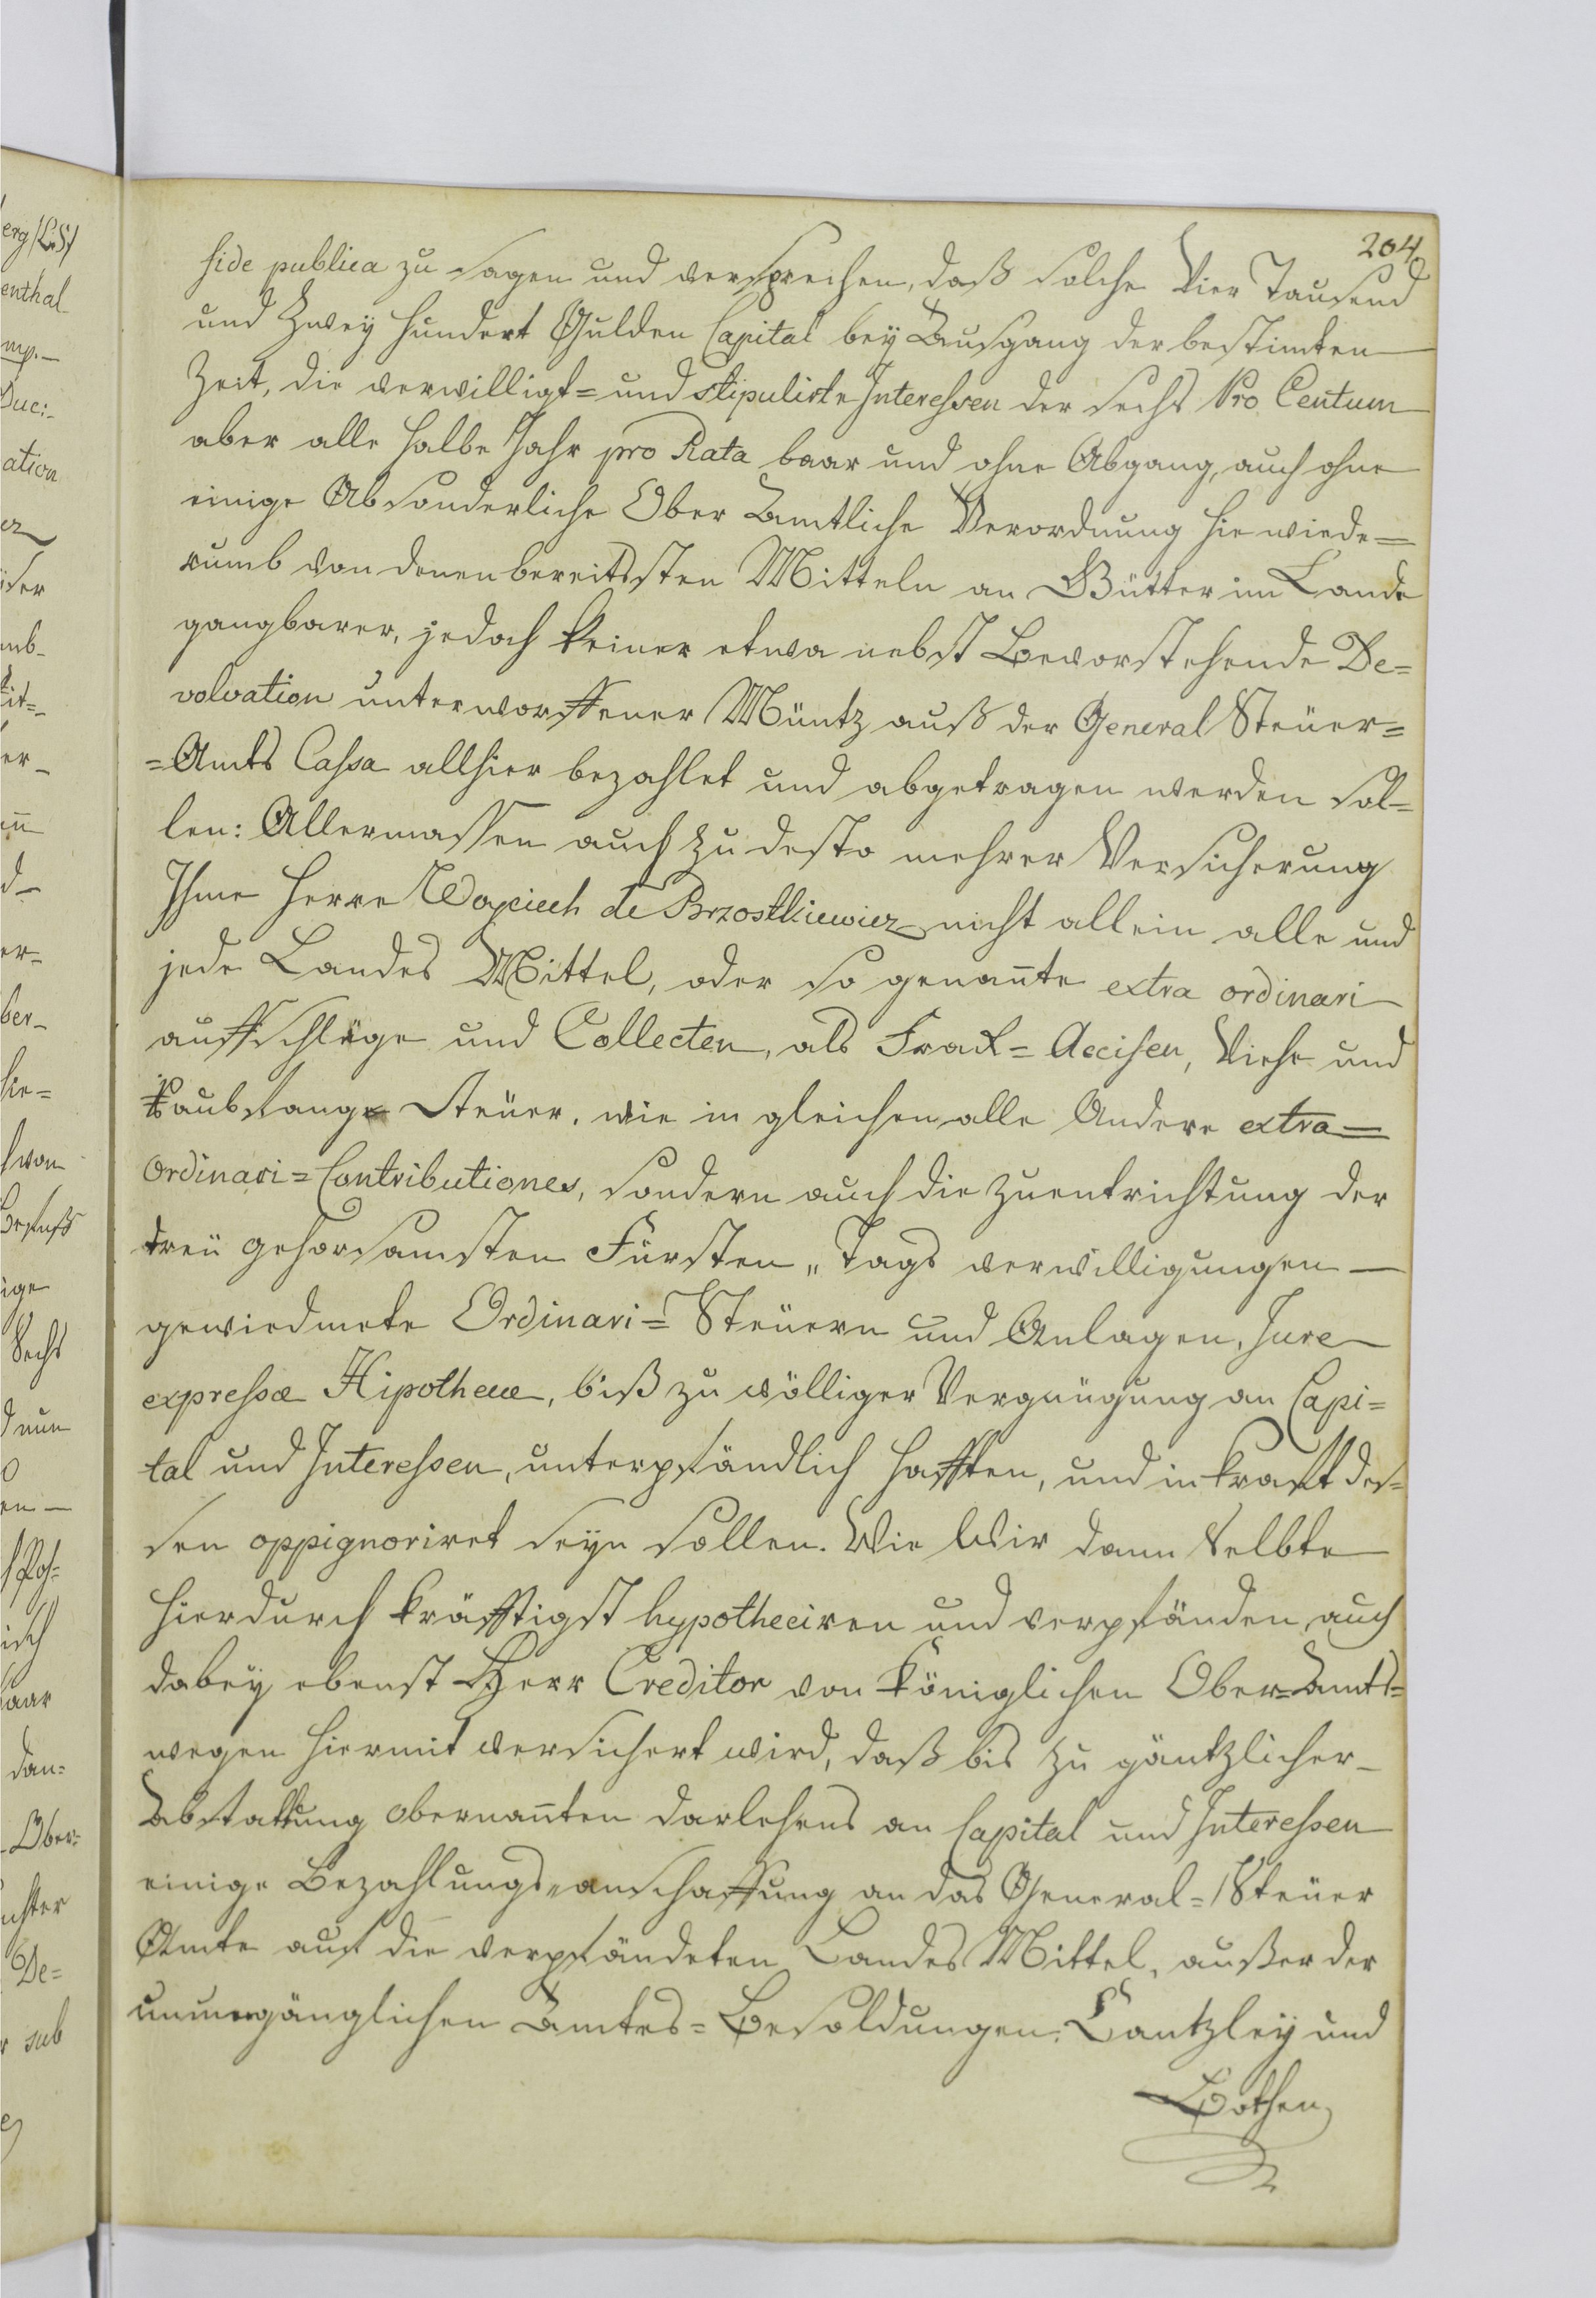 204
fide publica zu sagen und versprechen, daß solche Vier Tausend
und Zwey hundert Gulden Capital bey Ausgang der bestimten
Zeit, die verwilligt= und stipulirte Interessen der sechs Pro Centum
aber alle halbe Jahr pro Rata baar und ohne Abgang, auch ohne
einige Absonderliche Ober Amtliche Verordnung hie wiede=
rumb von denen bereitsten Mitteln an Gütter im Lande
gangbarer, jedoch keiner etwa nebst Bevorstehende De=
volvation unterworffener Müntz auß der General Steüer=
=Amts Cassa allhier bezahlet und abgetragen werden sol=
len: Allermassen auch zu desto mehrer Versicherung
Ihme Herrn Woyciech de Brzostkiewicz nicht allein alle und
jede Landes Mittel, oder so genannte extra ordinari
auffschläge und Collecten, als Frack= Accisen, Viehe und
Steüer, wie in gleichen alle Andere extra=
Ordinari=Contributiones, sondern auch die zuentrichtung der
treü gehorsamsten Fürsten „ Tags verwilligungen
gewiedmete Ordinari= Steüern und Anlagen, Jure
expressæ Hipothecæ, biß zu völliger Vergnügung an Capi=
tal und Interessen, unterpfändlich hafften, und in krafft des=
sen oppignoriret seyn sollen. Wie Wir dann Selbte
hierdurch kräfftigst hypotheciren und verpfänden, auch
dabey ebenst Herr Creditor von Königlichen Ober=Amts=
wegen hiermit versichert wird, daß bis zu gäntzlicher
Abstattung obernannten darlehens an Capital und Interessen
einige Bezahlungs„anschaffung an das General= Steüer
Amte auf die verpfändeten Landes Mittel, außer der
unumgänglichen Amtes=Besoldungen, Cantzley und
Bothen